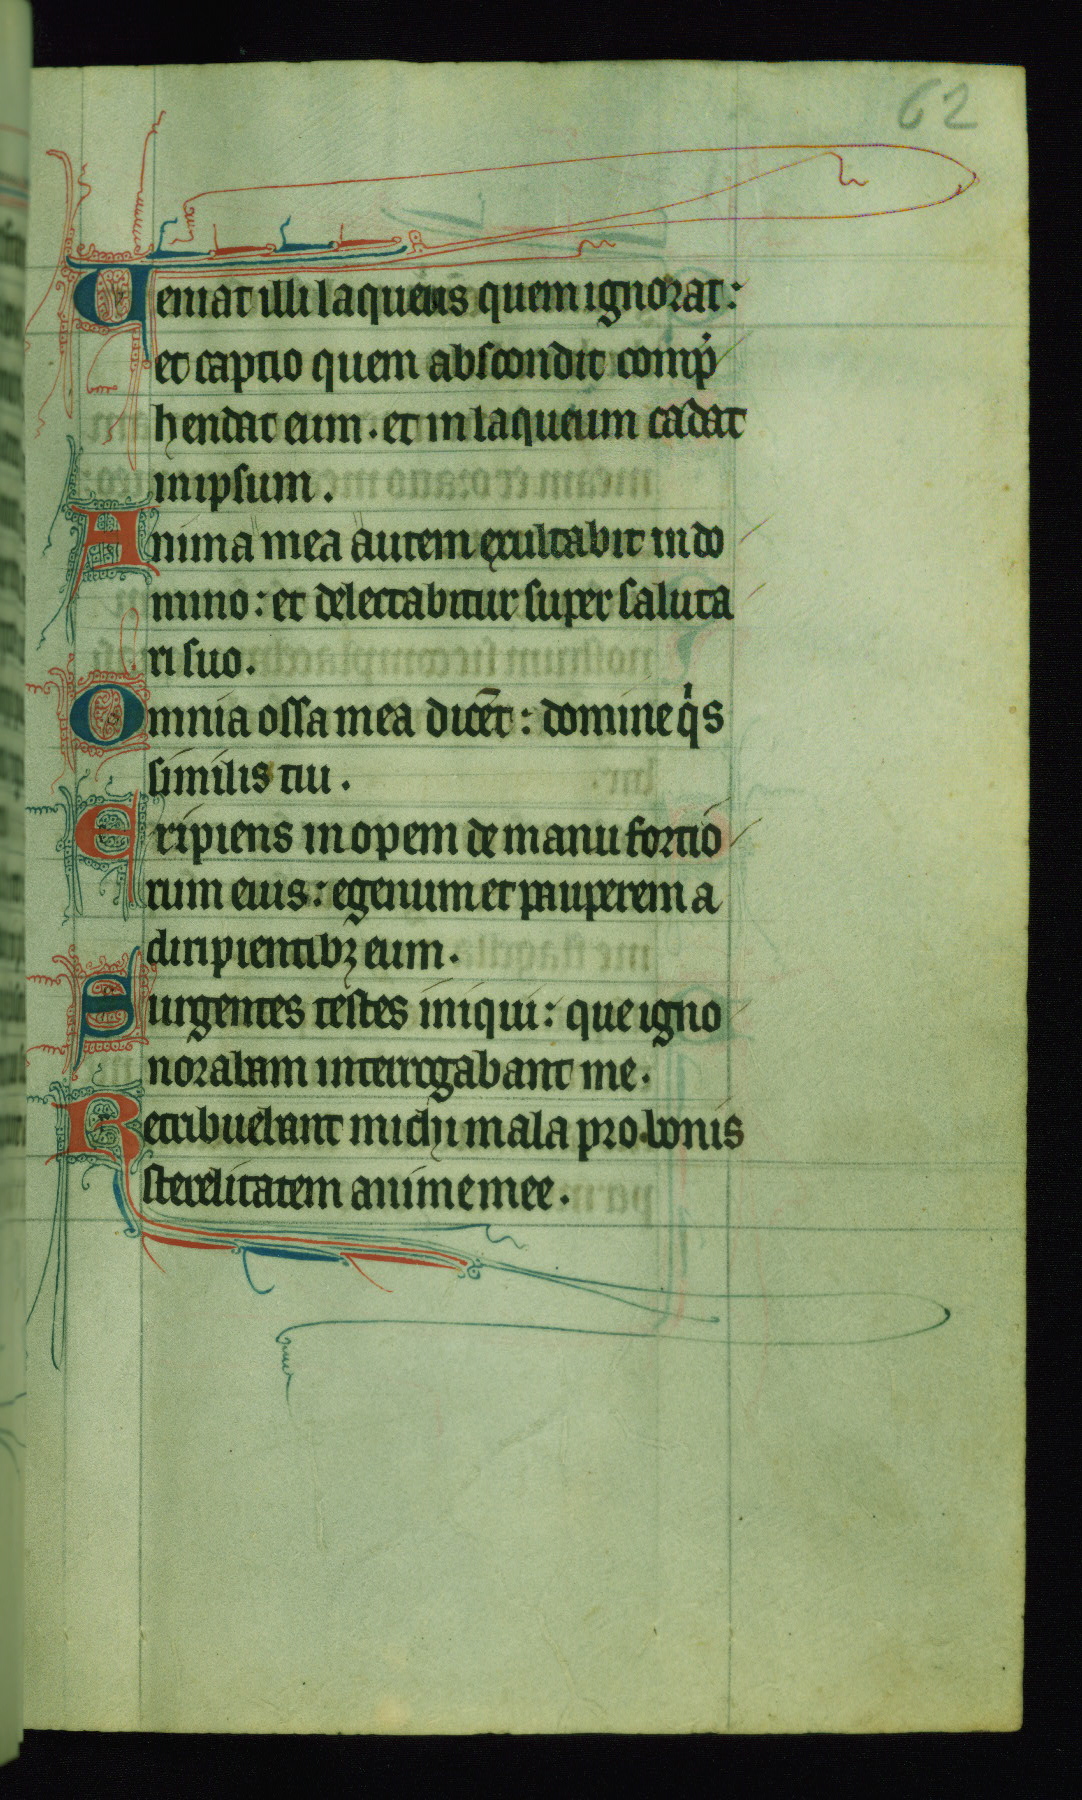 62
Veniat illi laqueus quem ignorat:
et captio quem abscondit comp̉
hendat eum. et in laqueum cadat
in ipsum.
Anima mea autem exultabit in do
mino: et delectabitur super saluta
ri suo.
Omnia ossa mea dicēt: domine qͥs
similis tui.
Eripiens inopem de manu fortio
rum eius: egenum et pauperem a
diripientibꝫ eum.
Surgentes testes iniqui: que igno
norabam interrogabant me.
Retribuebant michi mala pro bonis
sterelitatem anime mee.